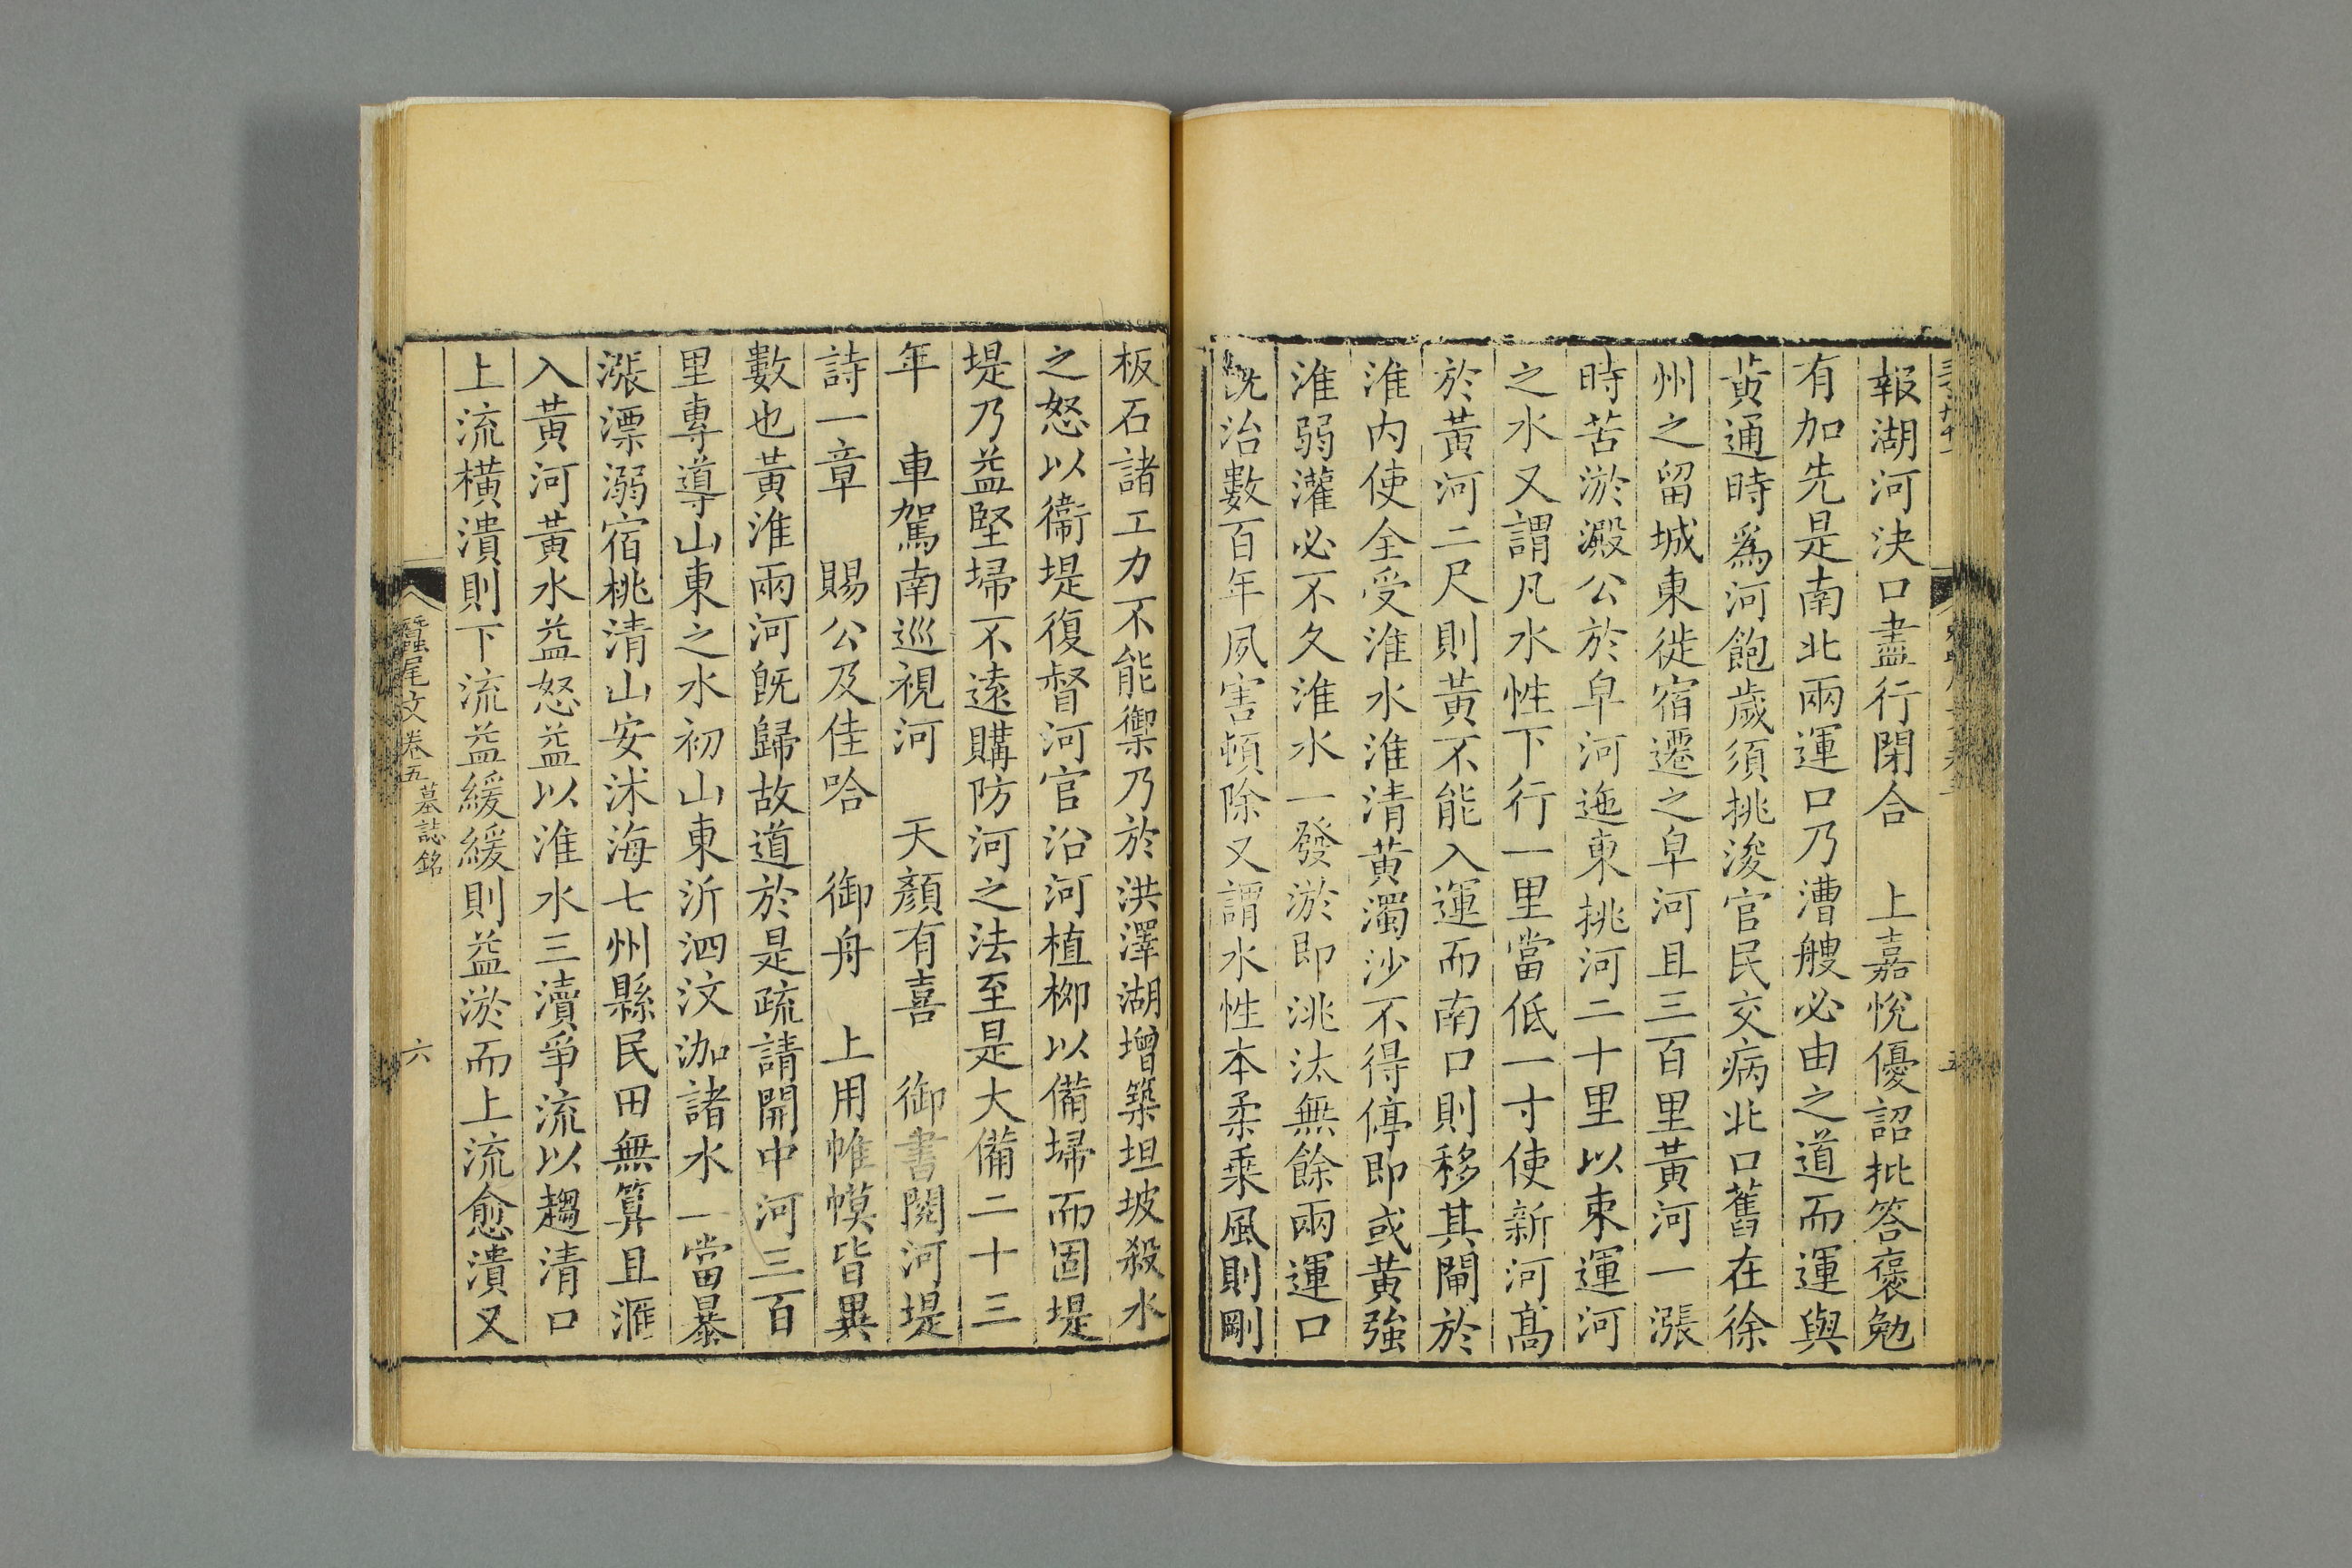 報湖河決口盡行閉合　上嘉悅優詔批答褒勉
有加先是南北兩運口乃漕艘必由之道而運與
黃通時爲河飽歲須挑浚官民交病北口舊在徐
州之留城東徙宿遷之皁河且三百里黃河一漲
時苦淤澱公於皁河迤東挑河二十里以束運河
之水又謂凡水性下行一里當低一寸使新河高
於黃河二尺則黃不能入運而南口則移其閘於
淮內使全受淮水淮清黃濁沙不得停即或黃強
淮弱灌必不久淮水一發淤即洮汰無餘兩運口
旣治數百年夙害頓除又謂水性本柔乘風則剛
板石諸工力不能禦乃於洪澤湖增築坦坡殺水
之怒以衞堤復督河官沿河植栁以備埽而固堤
堤乃益堅埽不遠購防河之法至是大備二十三
年　車駕南巡視河　天顏有喜　御書閱河堤
詩一章　賜公及佳哈　御舟　上用帷幙皆異
數也黃淮兩河旣歸故道於是疏請開中河三百
里專導山東之水初山東沂泗汶泇諸水一當暴
漲漂溺宿桃清山安沭海七州縣民田無算且滙
入黃河黃水益怒益以淮水三瀆爭流以趨清口
上流橫潰則下流益緩緩則益淤而上流愈潰又
蠶尾文卷五 墓誌銘 六